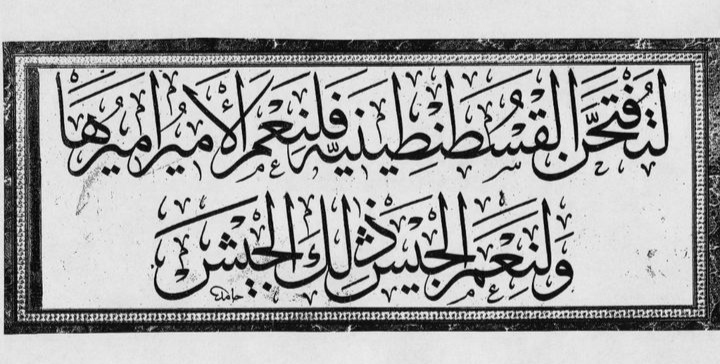 لَتُفْتَحَنَّ القُسْطَنْطِينِيَّة فَلَنِعْمَ الأَمِيرُ اَمِيرُهَا
وَلَنِعْمَ الجَيْشُ ذٰلِكَ الجَيْشُ
حامد